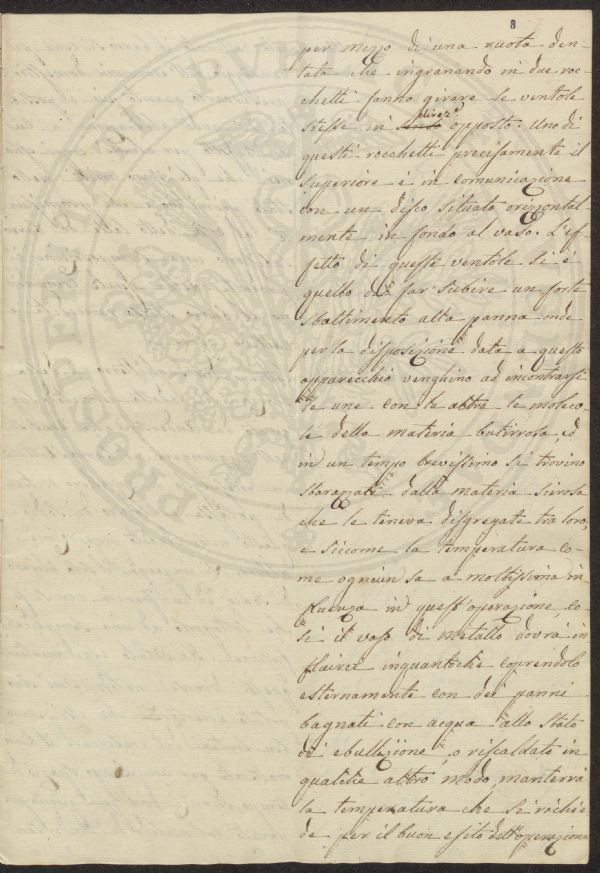 8
per mezzo di una ruota den-
tata che ingranando in due roc-
chetti fanno girare le ventole
direz.e
stesse in senso opposto. Uno di
questi rocchetti precisamente il
superiore è in comunicazione
con un disco situato orizzontal-
mente in fondo al vaso. L'ef-
fetto di queste ventole si è
quello di far subire un forte
sbattimento alla panna onde
per la disposizione data a questo
apparecchio venghino ad incontrarsi
le une con le altre le moleco-
le della materia butirrosa, ed
in un tempo brevissimo si trovino
separate dalla materia sierosa
che le teneva disgregate tra loro,
e siccome la temperatura co-
me ognun sa a moltissima in-
fluenza in quest'operazione, co-
sì il vaso di metallo dovrà in-
fluire inquantochè coprendolo
esternamente con dei panni
bagnati con acqua allo stato
di ebullizione, o riscaldato in
qualche altro modo, manterrà
la temperatura che si richie-
de per il buon esito dell'operazione
PROSPERITATI PUBLI